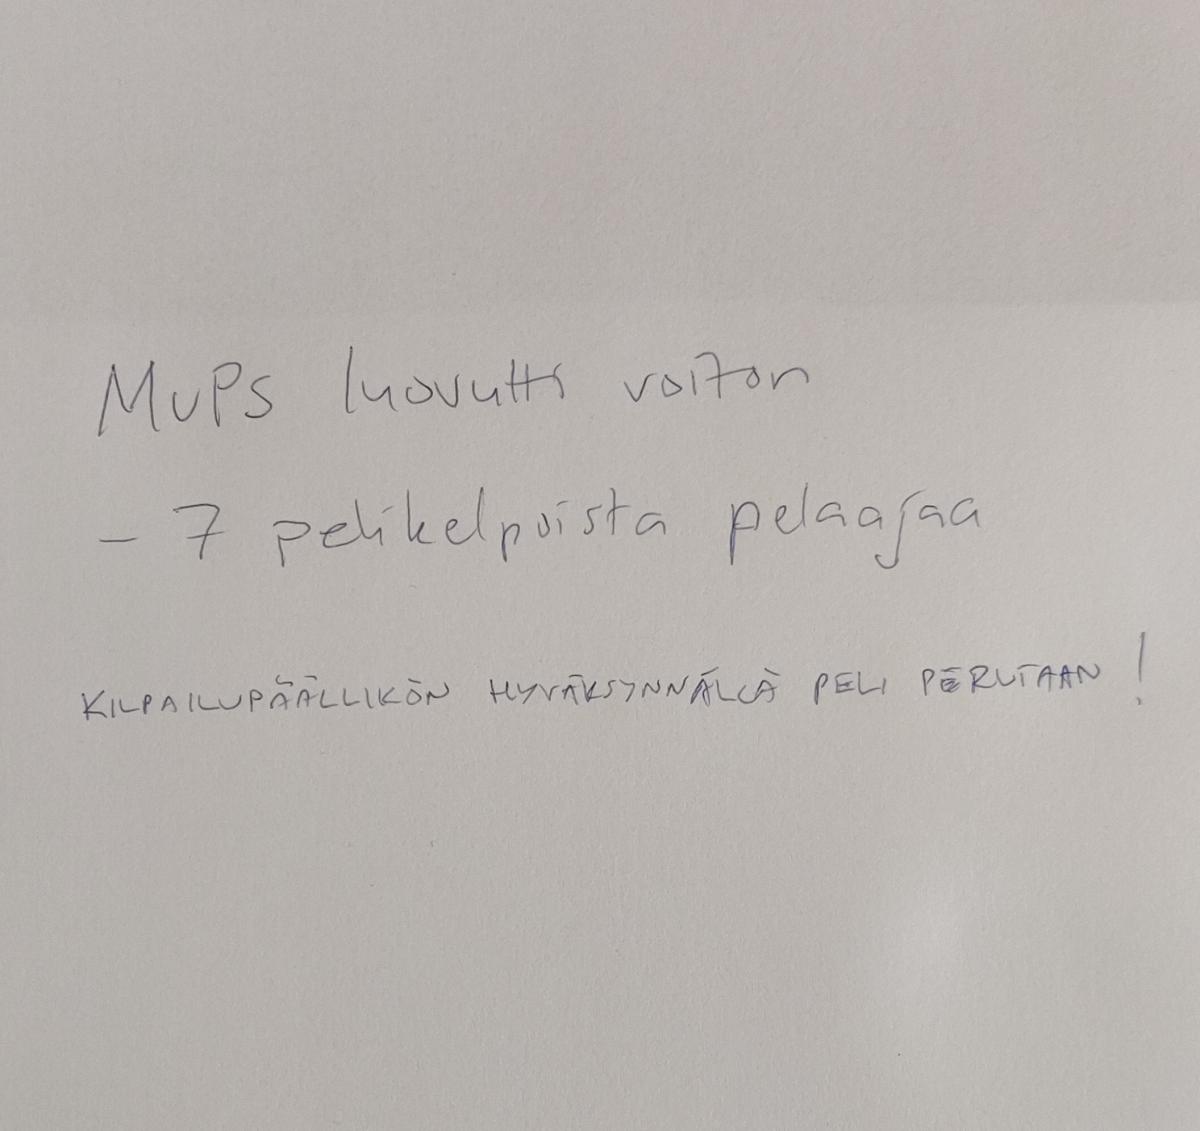 MuPS luovutti voiton
- 7 pelikelpoista pelaajaa
KILPAILUPÄÄLLIKÖN HYVÄKSYNNÄLLÄ PELI PERUTAAN!